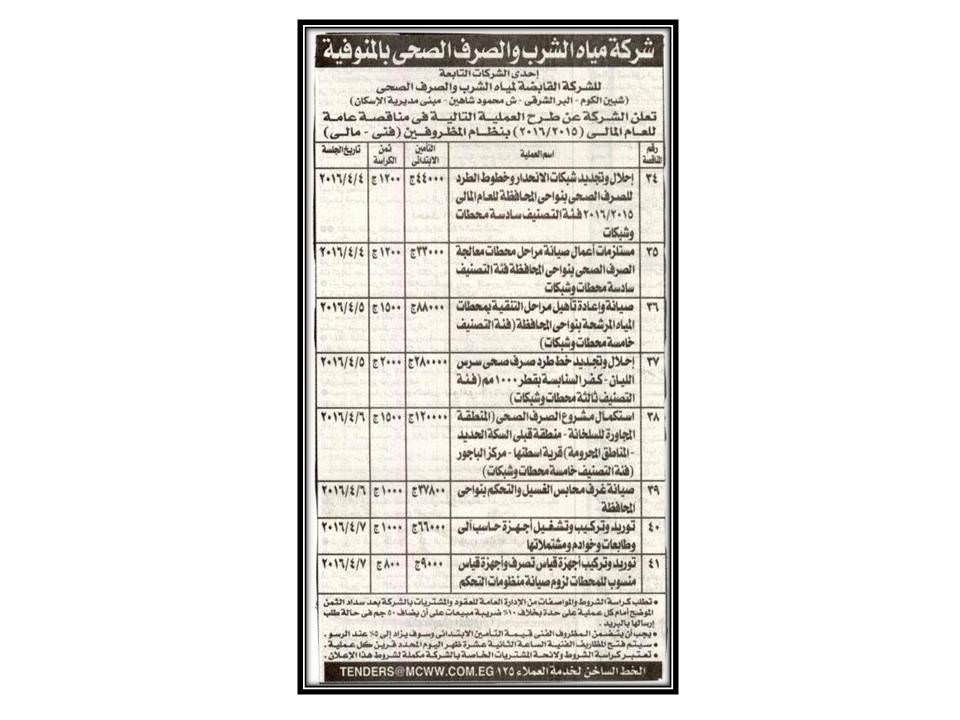 شركة مياه الشرب والصرف الصحى بالمنوفية
إحدى الشركات التابعة
للشركة القابضة لمياه الشرب والصرف الصحى
(شبين الكوم - البر الشرقى - ش محمود شاهين - مبنى مديرية الإسكان)
تعلن الشركة عن طرح العملية التالية فى مناقصة عامة
للعام المالى (٢٠١٦/٢٠١٥) بنظام المظروفين (فنى - مالى)
رقم المناقصة اسم العملية التأمين الابتدائى ثمن الكراسة تاريخ الجلسة
٣٤ إحلال وتجديد شبكات الانحدار وخطوط الطرد ٤٤٠٠٠ج ١٢٠٠ج ٢٠١٦/٤/٤
للصرف الصحى بنواحى المحافظة للعام المالى
٢٠١٦/٢٠١٥ فئة التصنيف سادسة محطات
وشبكات
٣٥ مستلزمات أعمال صيانة مراحل محطات معالجة ٣٣٠٠٠ج ١٢٠٠ج ٢٠١٦/٤/٤
الصرف الصحى بنواحى المحافظة فئة التصنيف
سادسة محطات وشبكات
٣٦ صيانة وإعادة تأهيل مراحل التنقية بمحطات ٨٨٠٠٠ج ١٥٠٠ج ٢٠١٦/٤/٥
المياه المرشحة بنواحى المحافظة (فئة التصنيف
خامسة محطات وشبكات)
٣٧ إحلال وتجديد خط طرد صرف صحى سرس ٢٨٠٠٠٠ج ٢٠٠٠ج ٢٠١٦/٤/٥
الليان - كفر السنابسة بقطر ١٠٠٠ مم (فئة
التصنيف ثالثة محطات وشبكات)
٣٨ استكمال مشروع الصرف الصحى (المنطقة ١٢٠٠٠٠ج ١٥٠٠ج ٢٠١٦/٤/٦
المجاورة للسلخانة - منطقة قبلى السكة الحديد
- المناطق المحرومة) قرية اسطنها - مركز الباجور
(فئة التصنيف خامسة محطات وشبكات)
٣٩ صيانة غرف محابس الغسيل والتحكم بنواحى ٣٧٨٠٠ج ١٠٠٠ج ٢٠١٦/٤/٦
المحافظة
٤٠ توريد وتركيب وتشغيل أجهزة حاسب آلى ٦٦٠٠٠ج ١٠٠٠ج ٢٠١٦/٤/٧
وطابعات وخوادم ومشتملاتها
٤١ توريد وتركيب أجهزة قياس تصرف وأجهزة قياس ٩٠٠٠ج ٨٠٠ج ٢٠١٦/٤/٧
منسوب للمحطات لزوم صيانة منظومات التحكم
• تطلب كراسة الشروط والمواصفات من الإدارة العامة للعقود والمشتريات بالشركة بعد سداد الثمن
الموضح أمام كل عملية على حدة بخلاف ١٠٪ ضريبة مبيعات على أن يضاف ٥٠ جم فى حالة طلب
إرسالها بالبريد .
• يجب أن يتضمن المظروف الفنى قيمة التأمين الابتدائى وسوف يزاد إلى ٥٪ عند الرسو .
• سيتم فتح المظاريف الفنية الساعة الثانية عشرة ظهر اليوم المحدد قرين كل عملية .
• تعتبر كراسة الشروط ولائحة المشتريات الخاصة بالشركة مكملة لشروط هذا الإعلان .
الخط الساخن لخدمة العملاء ١٢٥ TENDERS@MCWW.COM.EG